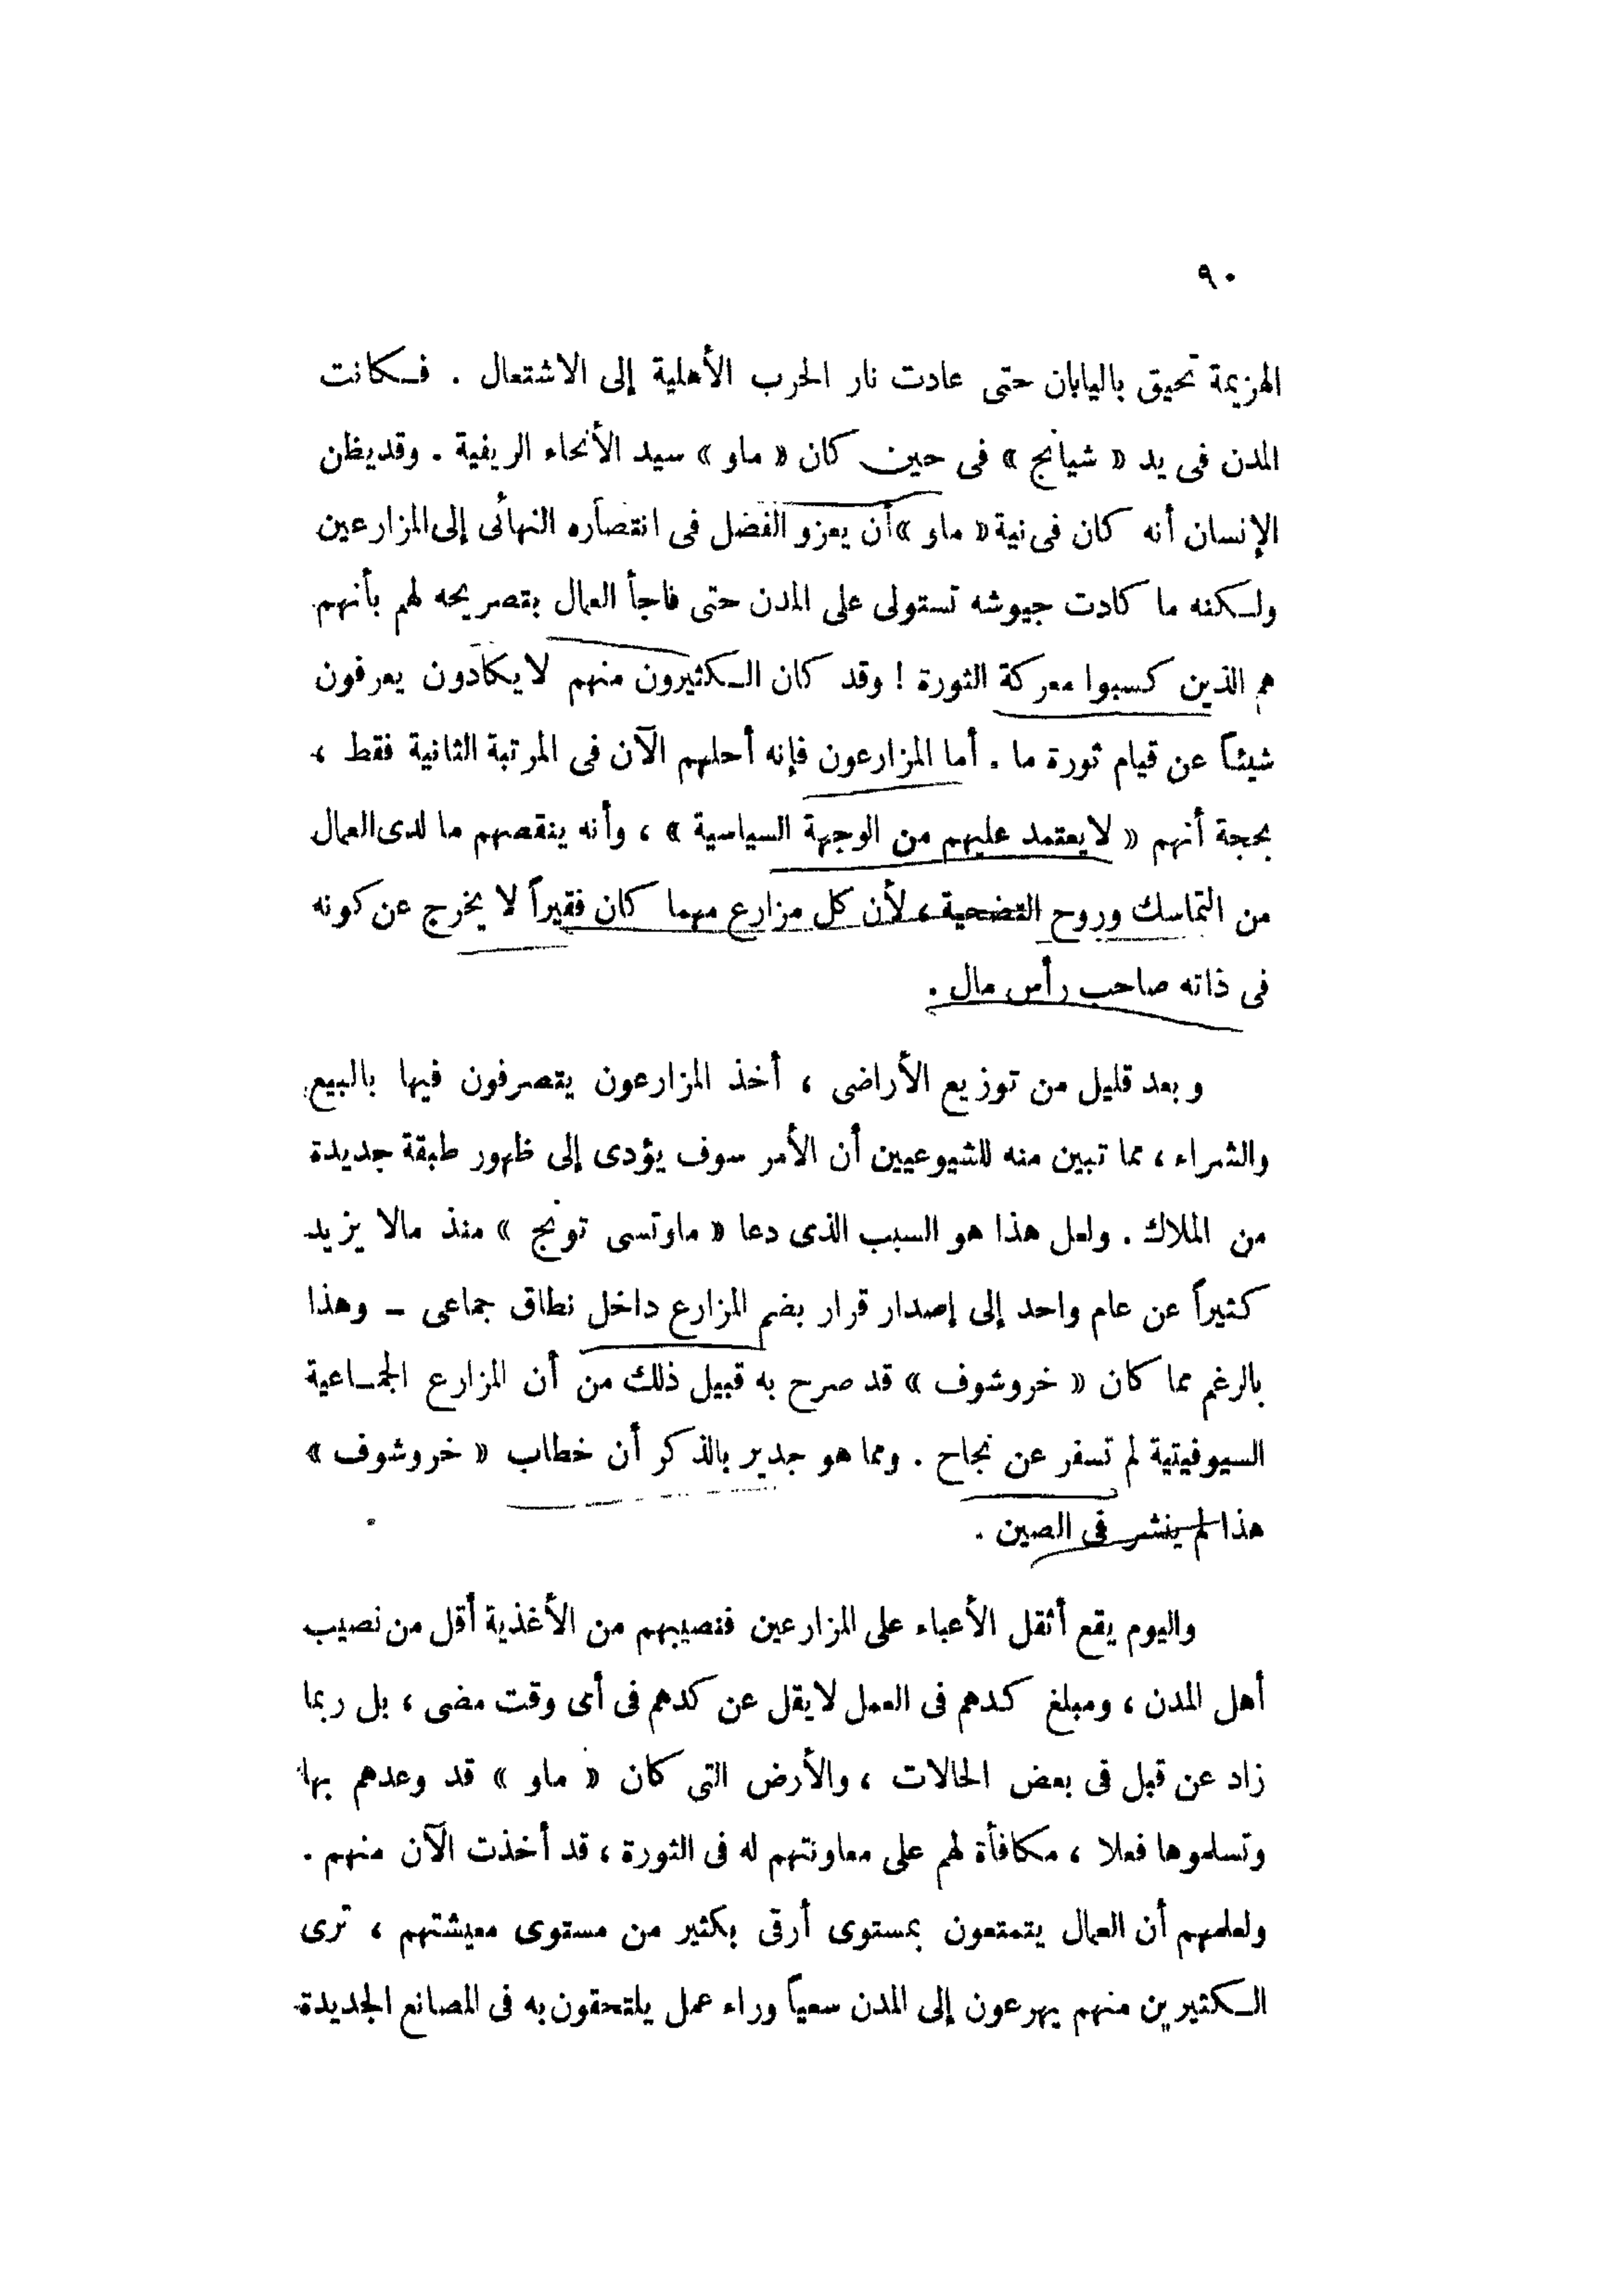 ٩٠
الهزيمة تحيق باليابان حتى عادت نار الحرب الأهلية إلى الاشتعال . فكانت
المدن فى يد « شيانج » فى حين كان « ماو » سيد الأنحاء الريفية . وقد يظن
الإنسان أنه كان فى نية « ماو » أن يعزو الفضل فى انتصاره النهائى إلى المزارعين
ولكنه ما كادت جيوشه تستولى على المدن حتى فاجأ العمال بتصريحه لهم بأنهم
هم الذين كسبوا معركة الثورة ! وقد كان الكثيرون منهم لا يكادون يعرفون
شيئاً عن قيام ثورة ما . أما المزارعون فإنه أحلهم الآن فى المرتبة الثانية فقط ،
بحجة أنهم « لا يعتمد عليهم من الوجهة السياسية » ، وأنه ينقصهم ما لدى العمال
من التماسك وروح التضحية ، لأن كل مزارع مهما كان فقيراً لا يخرج عن كونه
فى ذاته صاحب رأس مال .
وبعد قليل من توزيع الأراضى ، أخذ المزارعون يتصرفون فيها بالبيع
والشراء ، مما تبين منه للشيوعيين أن الأمر سوف يؤدى إلى ظهور طبقة جديدة
من الملاك . ولعل هذا هو السبب الذى دعا « ماوتسى تونج » منذ مالا يزيد
كثيراً عن عام واحد إلى إصدار قرار بضم المزارع داخل نطاق جماعى – وهذا
بالرغم مما كان « خروشوف » قد صرح به قبيل ذلك من أن المزارع الجماعية
السيوفيتية لم تسفر عن نجاح . ومما هو جدير بالذكر أن خطاب « خروشوف »
هذا لم ينشر فى الصين .
واليوم يقع أثقل الأعباء على المزارعين فنصيبهم من الأغذية أقل من نصيب
أهل المدن ، ومبلغ كدهم فى العمل لا يقل عن كدهم فى أى وقت مضى ، بل ربما
زاد عن قبل فى بعض الحالات ، والأرض التى كان « ماو » قد وعدهم بها
وتسلموها فعلا ، مكافأة لهم على معاونتهم له فى الثورة ، قد أخذت الآن منهم .
ولعلمهم أن العمال يتمتعون بمستوى أرقى بكثير من مستوى معيشتهم ، ترى
الكثيرين منهم يهرعون إلى المدن سعياً وراء عمل يلتحقون به فى المصانع الجديدة